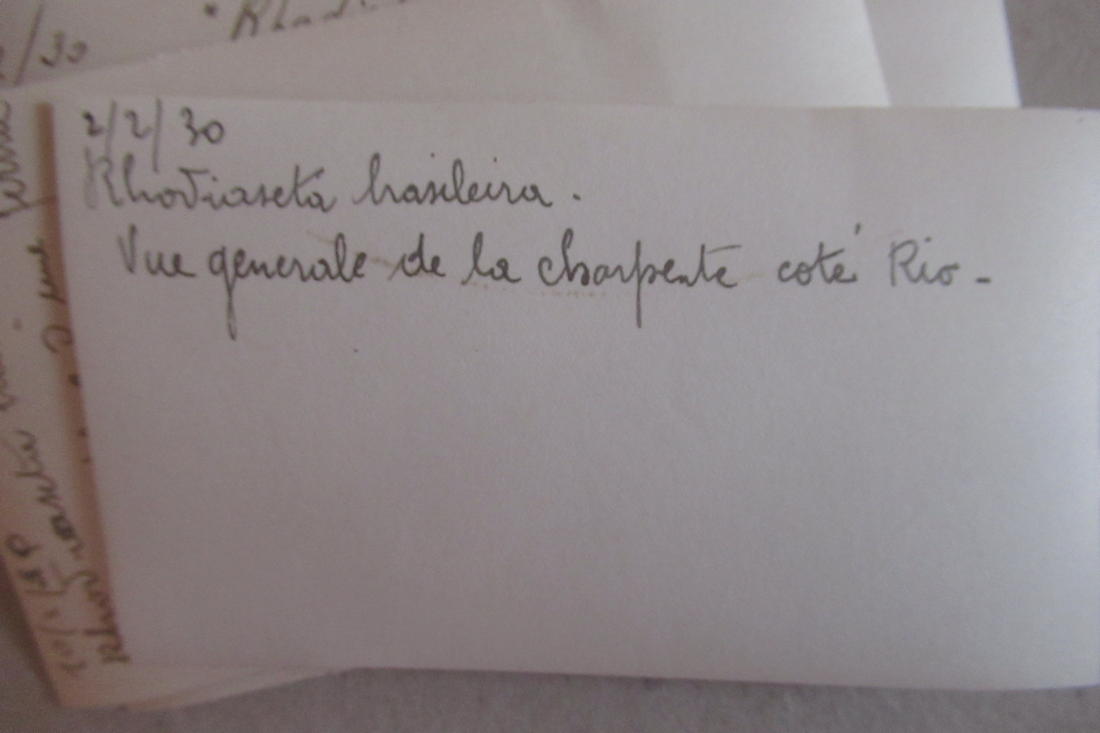 2/2/30
Rhodiaseta brasileira.
Vue generale de la charpente coté Rio -